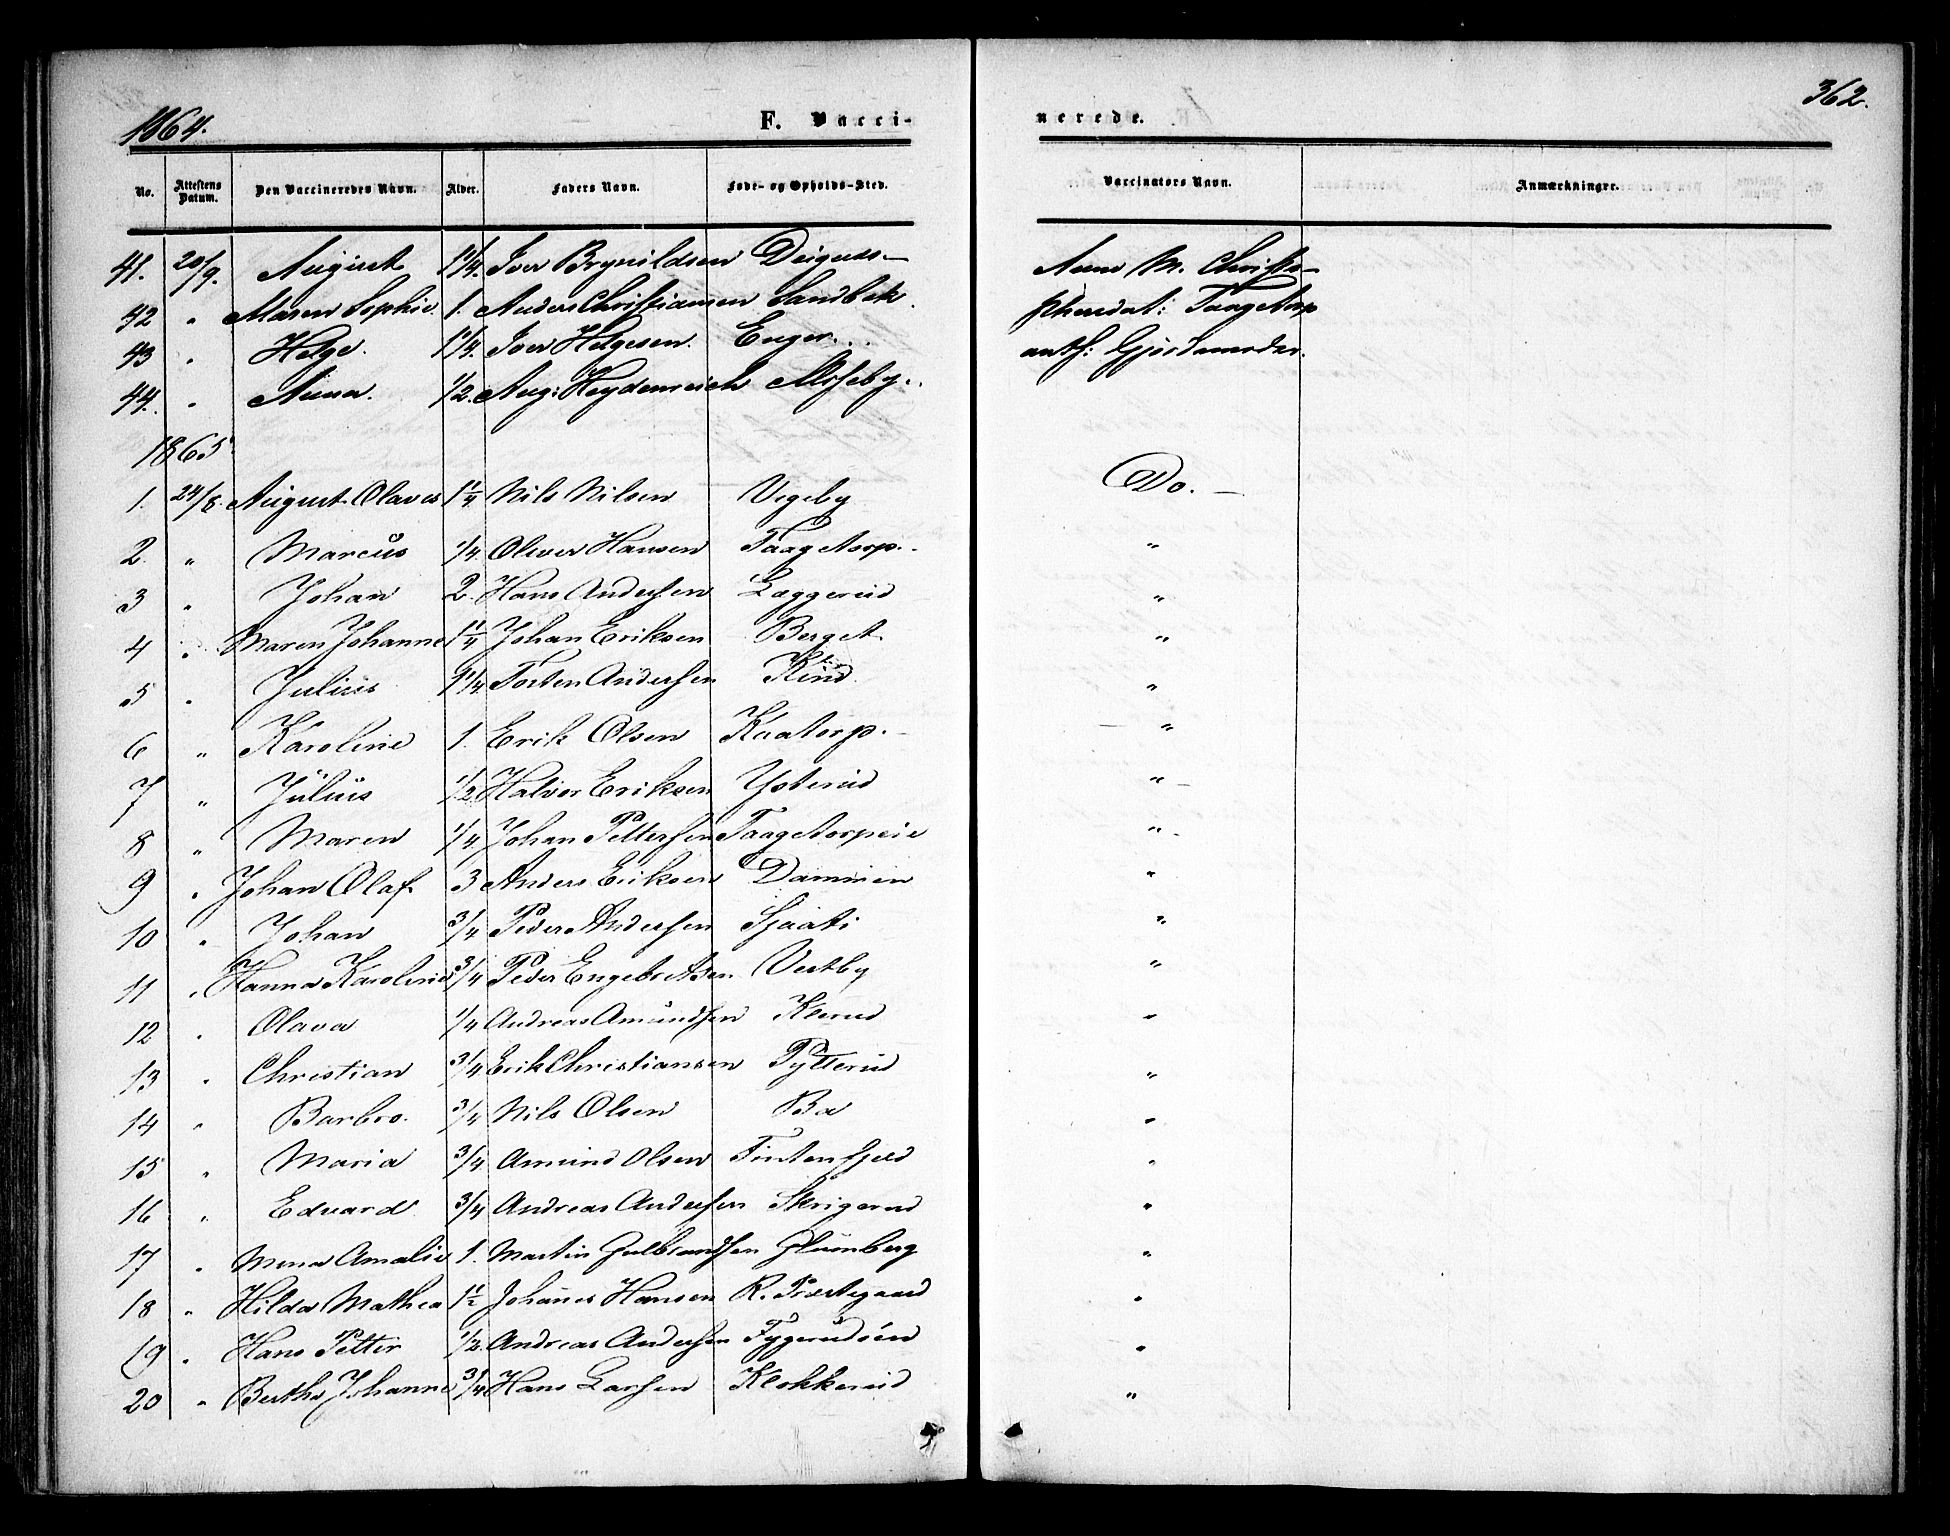 1864. F. Vacci- nerede. 362.
No. Attestens Datum. Den Vaccineredes Navn. Alder. Faders Navn. Føde- og Opholds-Sted. Vaccinators Navn. Anmærkninger.
41. 20/9. August 1 1/4. Iver Brynildsen Anne M. Christo-
42 " Maren Sophie. 1. Anders Christiansen Sandbek. phersdat: Taagetorp
43 " Helge. 1 1/4. Iver Helgesen. Enger. auth: Gjordemoder.
44. " Anna. 1/2. Aug: Heydenreich Mysseby.
1865
1. 24/8. August Olaves 1 1/4 Nils Nilsen Vegeby Do. —
2. " Marcus 1/4. Oliver Hansen Taagetorp. "
3 " Johan 2. Hans Andersen Laggerud "
4 " Maren Johanne 1 1/4 Johan Eriksen Berget "
5 " Julius 1 1/4. Torsten Andersen Kind. "
6 " Karoline 1. Erik Olsen Kaatorp. "
7 " Julius 1/2 Halvor Eriksen Ysterud "
8 " Maren 1/4. Johan Pettersen Taagetorpeie "
9 " Johan Olaf 3 Anders Eriksen Dammen "
10 " Johan 3/4 Peder Andersen "
11 " Hanna Karoline 3/4 Peder Engebretsen Vestby "
12 " Olava 1/4 Andreas Amundsen Klerud "
13 " Christian 3/4 Erik Christiansen Pytterud "
14 " Barbro. 3/4 Nils Olsen Bø "
15 " Maria 3/4 Amund Olsen "
16 " Edvard 3/4 Andreas Andersen Skrigerud "
17 " Mina Amalie 1. Martin Gulbrandsen Plumberg "
18 " Hilda Mathea 1 1/2 Johanes Hansen R. Præstegaard "
19 " Hans Petter 1/2. Andreas Andersen "
20 " Berthe Johanne 3/4 Hans Larsen Klokkerud "